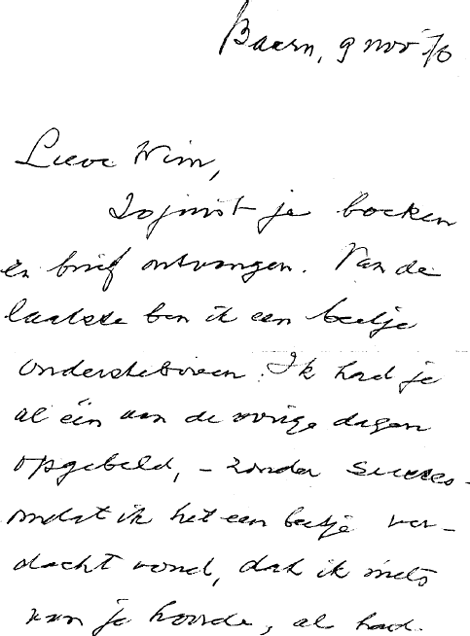 Baarn, 9 nov 70
Lieve Wim,
Zojuist je boeken
en brief ontvangen. Van de
laatste ben ik een beetje
ondersteboven. Ik had je
al één van de vorige dagen
opgebeld, – zonder succes –
omdat ik het een beetje ver-
dacht vond, dat ik niets
van je hoorde, al had